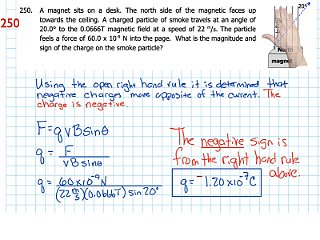 250. A magnet sits on a desk. The north side of the magnet faces up
towards the ceiling. A charged particle of smoke travels at an angle of
20.0° to the 0.0666T magnetic field at a speed of 22 m/s. The particle
feels a force of 60.0 x 10⁻⁹ N into the page. What is the magnitude and
sign of the charge on the smoke particle?
250
20°
North
magnet
Using the open right hand rule it is determined that
negative charges move opposite of the current. The
charge is negative.
F=qvBsinθ
q = F / vBsinθ
q = 60x10⁻⁹N / (22 m/s)(0.0666T) sin 20°
The negative sign is
from the right hand rule
above.
q = -1.20x10⁻⁷C